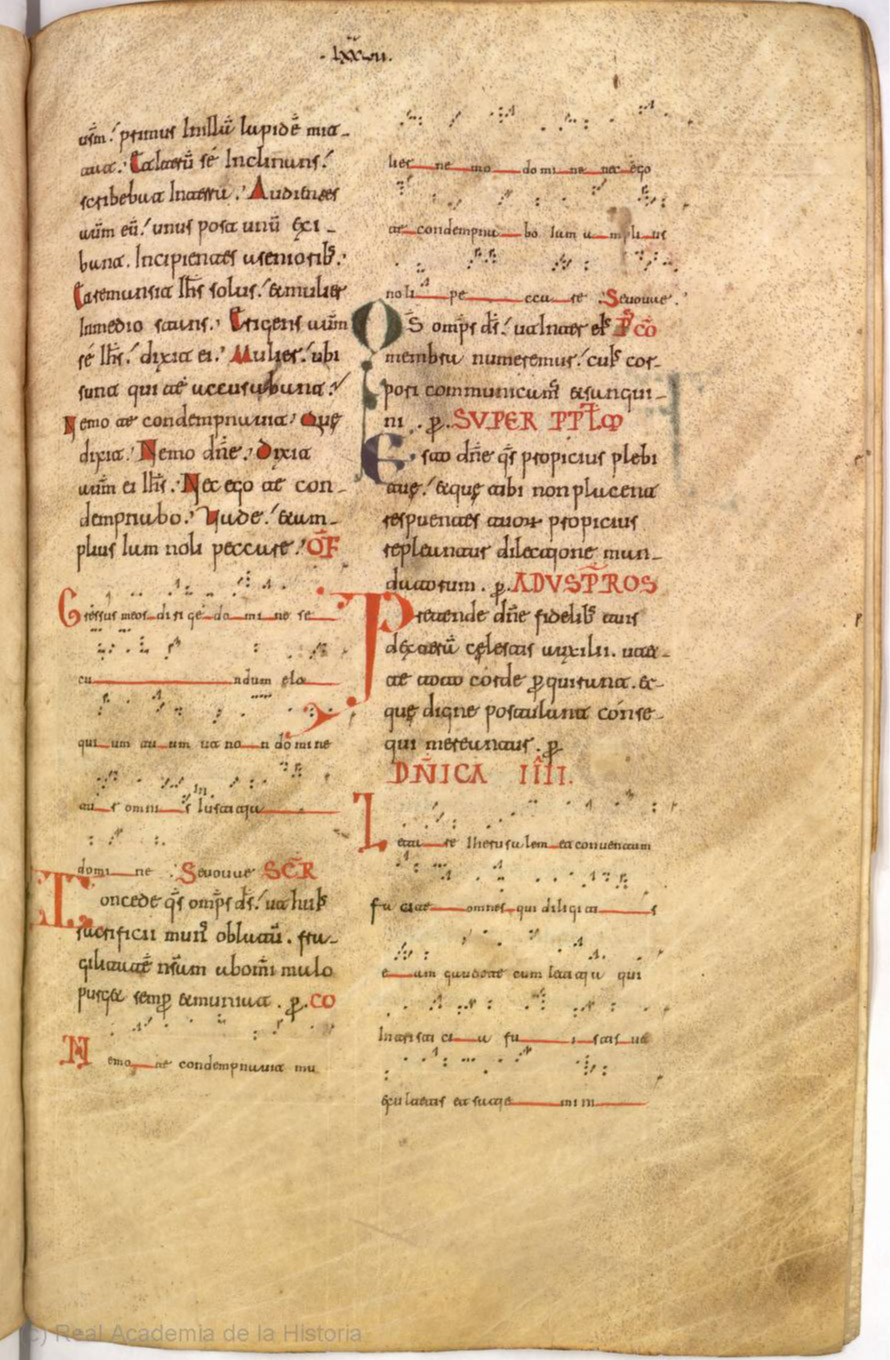 .lxxxvii.
urm! primus In illũ lapidẽ mit-
tat. Et iterũ sé Inclinans!
scribebat In terrã. Audientes
autm eũ! unus post unũ exi-
bant. Incipientes a seniorib;
Et remansit Ihs solus! et mulier
In medio stans. Erigens autm
sé Ihs! dixit ei. Mulier! ubi
sunt qui te accusabant!
Nemo te condempnauit. Que
dixit. Nemo dñe. Dixit
autm ei Ihs. Nec ego te con-
dempnabo. Uade! et am-
plius Iam noli peccare. OF
Gressus meos dirige domine se
cundum elo
quium tuum ut non domine
tur omnis Iusticia
domine Seuouae SCR
Concede qs omps ds! ut huis
sacrificii munus oblatũ. fra-
gilitatẽ nram ab omi malo
purget semp et muniat. p. CO
Nemo te condempnauit mu
lier nemo domine nec ego
te condempnabo Iam amplius
noli peccare Seuouae.
QS omps ds! ut Inter eis PCO
membra numeremur! cuis cor-
pori communicams et sangui-
ni. p. SUPER PPLM
Esto dñe qs propicius plebi
tue! et que tibi non placent
respuentes tuor propicius
repleantur dilectione man-
datorum. p. AD VSPROS
Pretende dñe fidelib; tuis
dexterã celestis auxilii. ut te
te toto corde perquirant. et
que digne postulant conse-
qui mereantur. p
DÑICA IIII.
Letare Iherusalem et conuentum
facite omnes qui diligitis
eam gaudete cum leticia qui
In tristicia fuistis ut
exultetis et saciemini
(c) Real Academia de la Historia